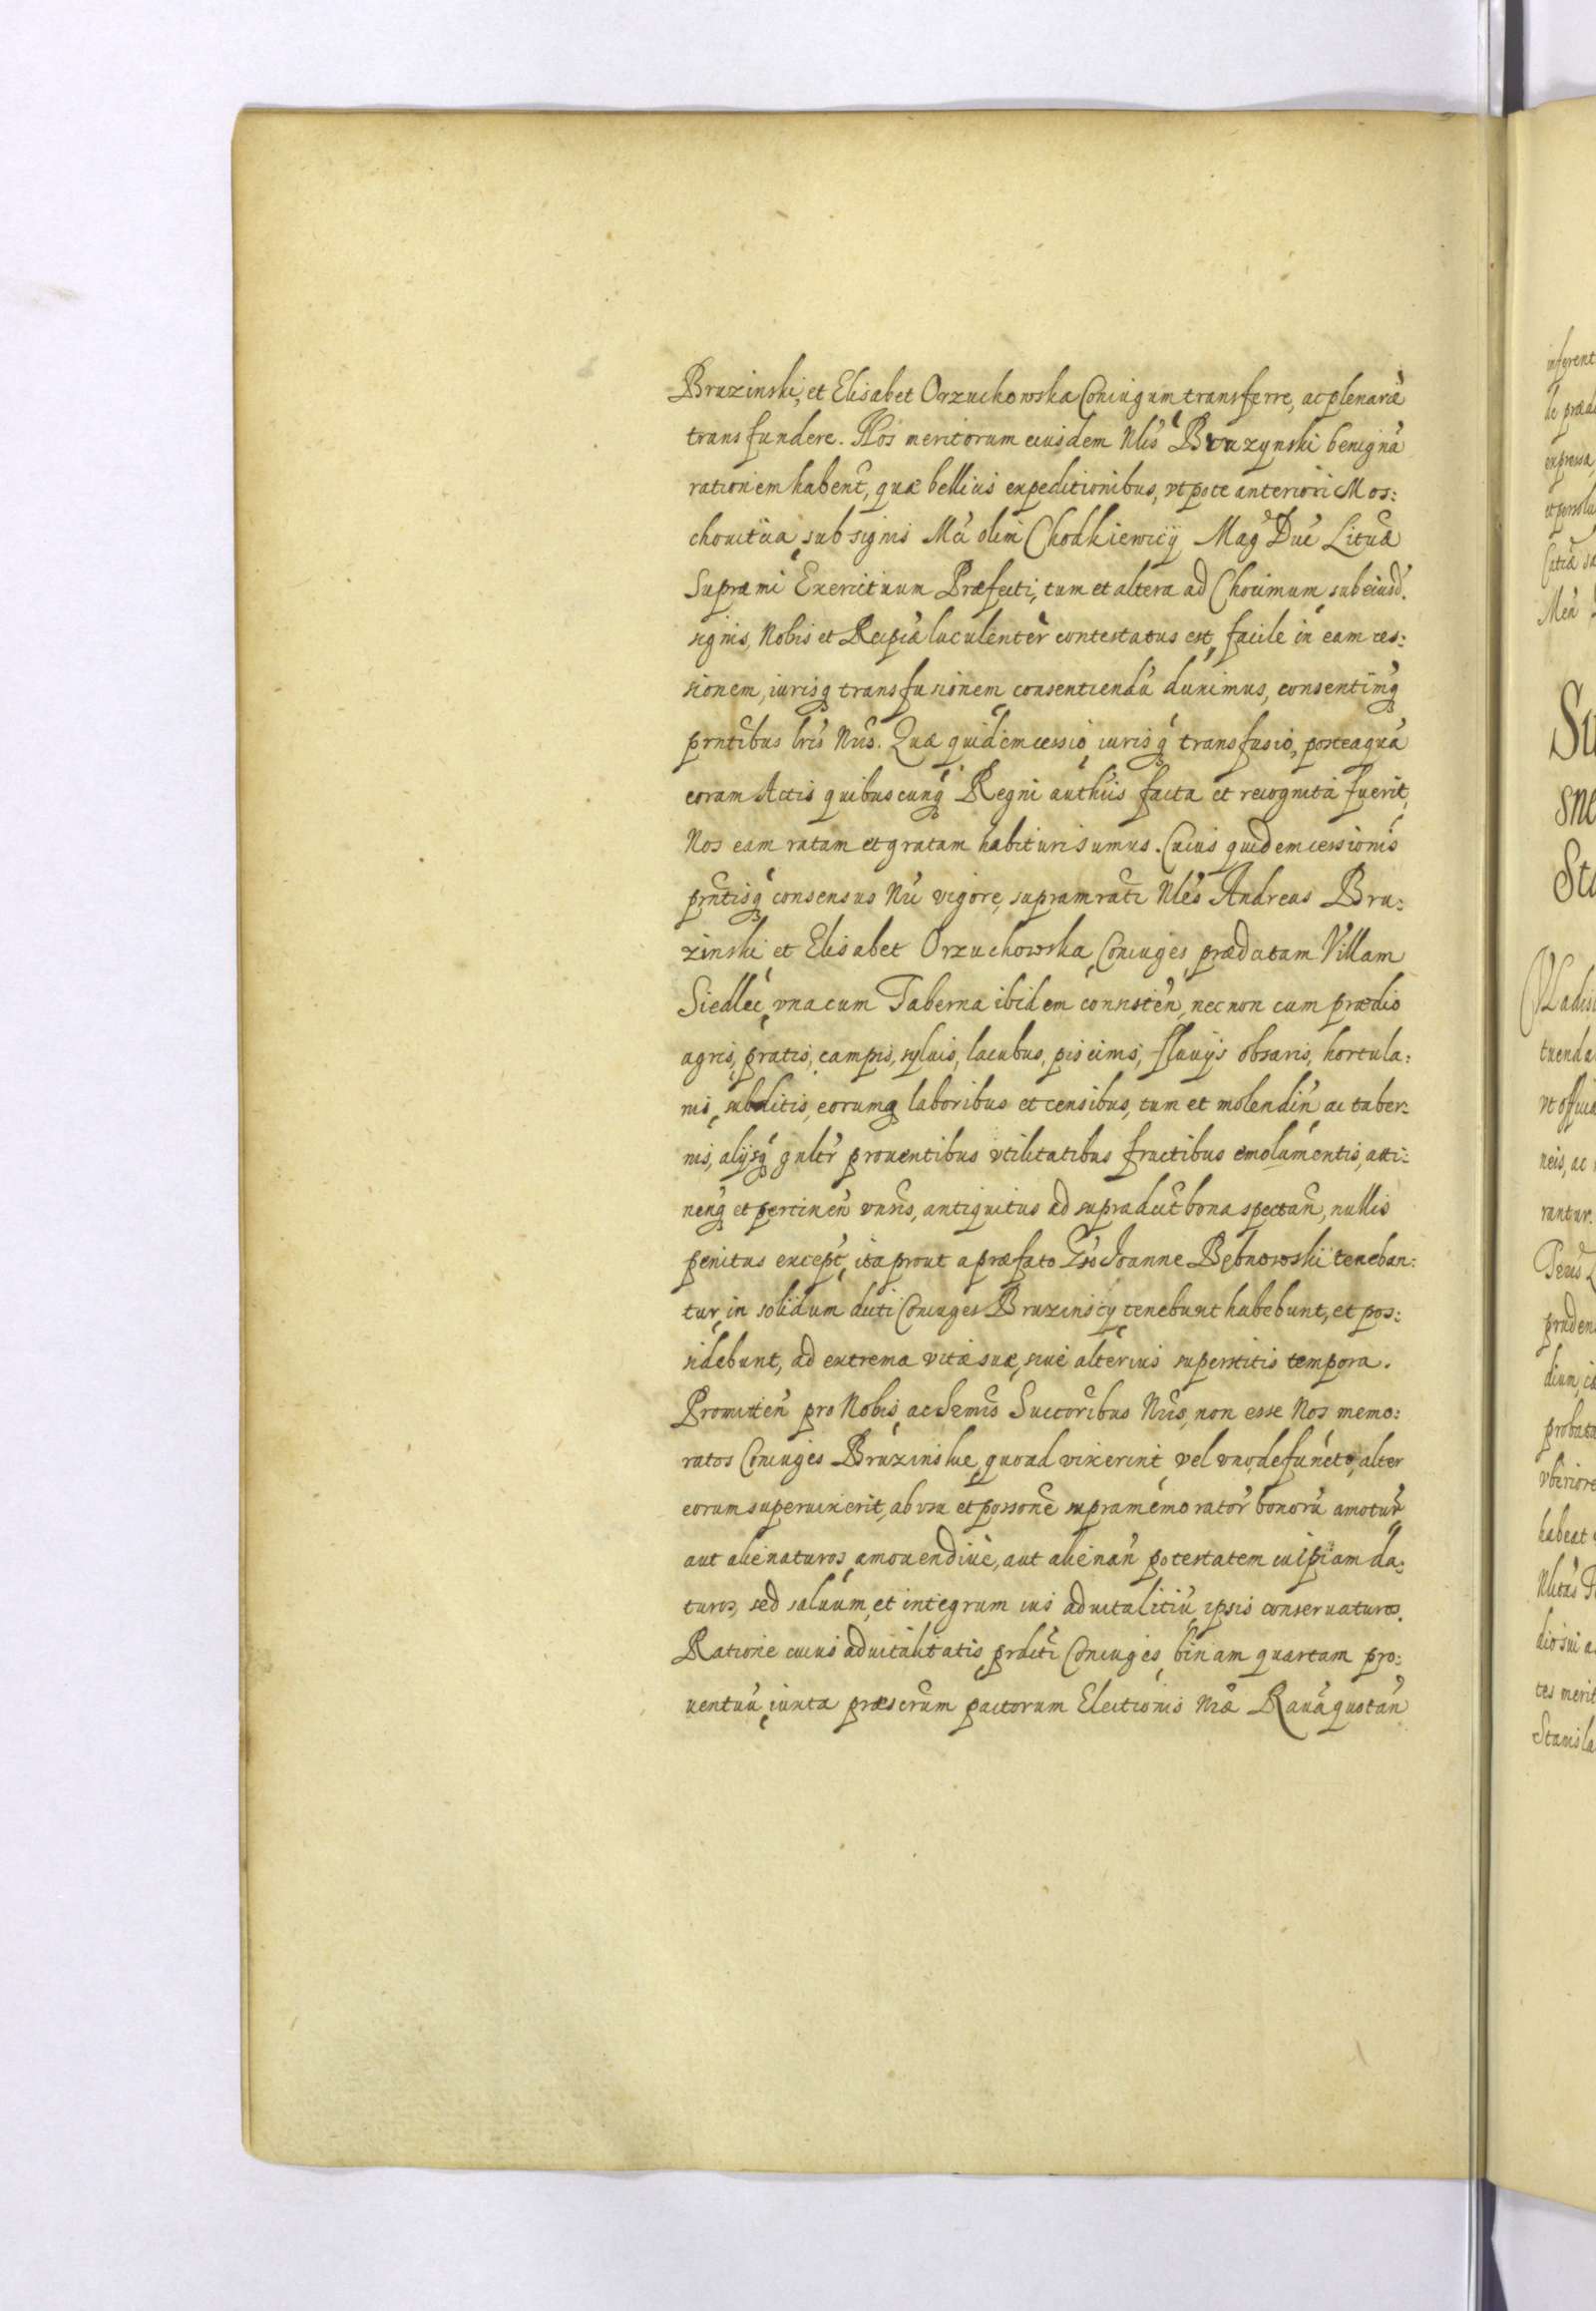 Bruzinski, et Elisabet Orzuchowska Coniugum transferre, ac plenariè
transfundere. Nos meritorum eiusdem Nlis Bruzynski benignã
rationem habent, quæ bellicis expeditionibus, vtpote anteriori Mos:
chouitica, sub signis Mci olim Chodkiewicij Mag Duc Lituæ
Supremi Exercituum Præfecti, tum et altera ad Chocimum sub eiusd.
signis, Nobis et Reipcæ luculenter contestatus est, facile in eam ces:
sionem, iurisq transfusionem consentiendũ duximus, consentimq
prntibus lris Nris. Quæ quidem cessio iurisq transfusio, posteaquã
coram Actis quibuscunq Regni authcis facta et recognita fuerit,
Nos eam ratam et gratam habituri sumus. Cuius quidem cessionis
prntisq consensus Nri vigore, supramrati Nles Andreas Bru:
zinski et Elisabet Orzuchowska Coniuges prædictam Villam
Siedlec, vna cum Taberna ibidem consisten, nec non cum prædio
agris, pratis, campis, syluis, lacubus, piscinis, fluuijs obsaris, hortula:
nis, subditis, eorumq laboribus et censibus, tum et molendin ac taber:
nis, alijsq gnlr prouentibus vtilitatibus fructibus emolumentis, atti:
nenq et pertinen vnris, antiquitus ad supradict bona spectan, nullis
penitus except, ita prout a præfato Gso Ioanne Bębnowski teneban:
tur, in solidum dicti Coniuges Bruzinscy tenebunt habebunt, et pos:
sidebunt, ad extrema vitæ suæ, siue alterius superstitis tempora.
Promitten pro Nobis, ac Sermis Succoribus Nris, non esse Nos memo:
ratos Coniuges Bruzinskie, quoad vixerint, vel vno defuncto, alter
eorum superuixerit, ab vsu et possone supramemorator bonorũ amotur
aut alienaturos, amouendiue, aut alienan potestatem cuipiam da:
turos, sed saluum, et integrum ius aduitalitiũ ipsis conseruaturos.
Ratione cuius aduitalitatis prdcti Coniuges binam quartam pro:
uentuũ iuxta præscrum pactorum Electionis Nræ Rauã quotan